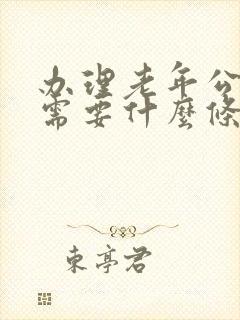 办理老年公
需要什麼條
東亭君